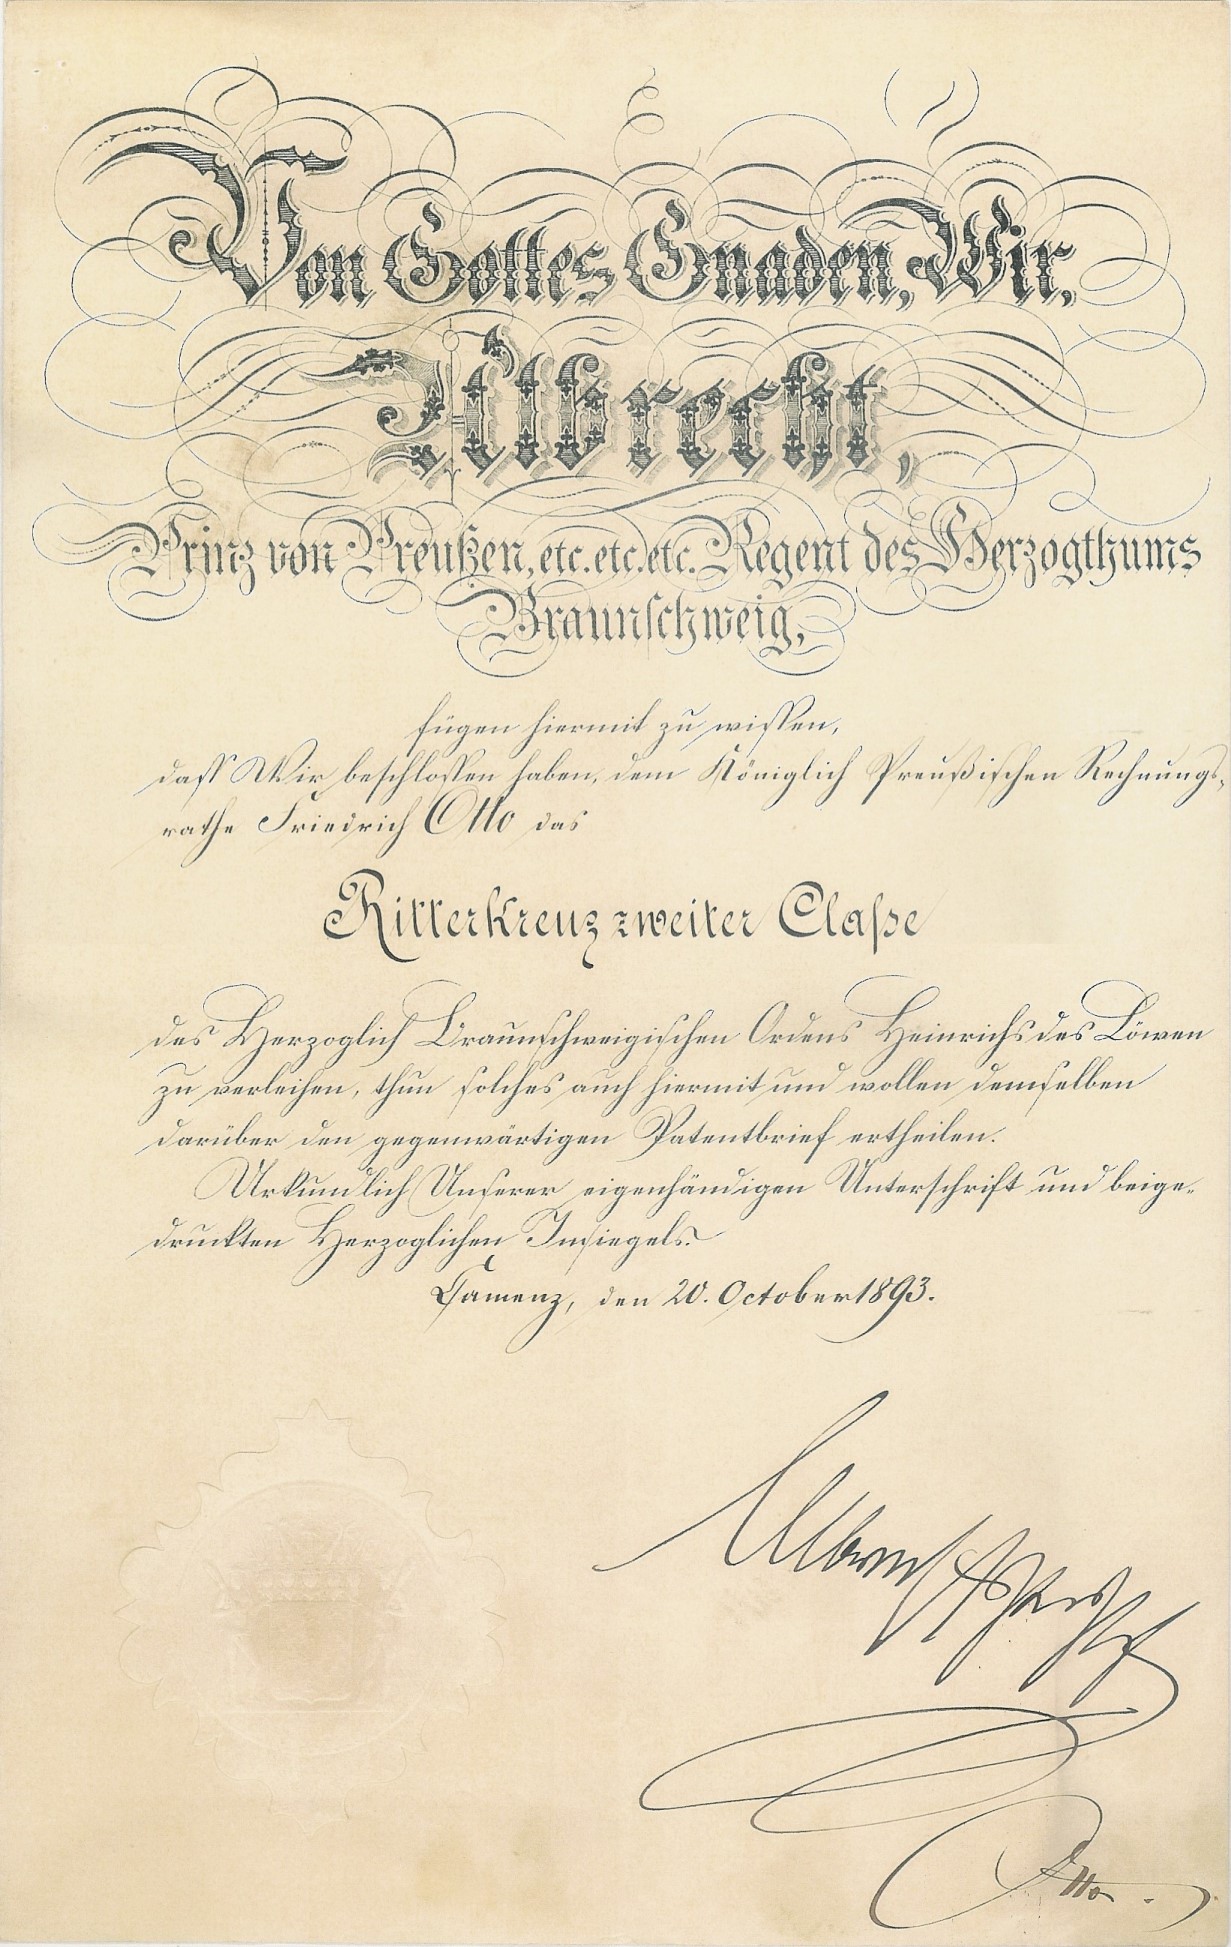 Von Gottes Gnaden, Wir,
Albrecht,
Prinz von Preußen, etc. etc. etc. Regent des Herzogthums
Braunschweig,
fügen hiermit zu wissen,
dass Wir beschlossen haben, dem Königlich Preußischen Rechnungs-
rathe Friedrich Otto das
Ritterkreuz zweiter Claße
des Herzoglich Braunschweigischen Ordens Heinrichs des Löwen
zu verleihen, thun solches auch hiermit und wollen demselben
darüber den gegenwärtigen Patentbrief ertheilen.
Urkundlich Unserer eigenhändigen Unterschrift und beige-
druckten Herzoglichen Insiegels.
Camenz, den 20. October 1893.
Albrecht
Otto